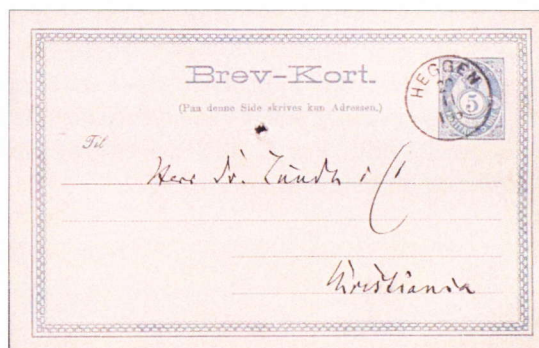 Brev-Kort.
(Paa denne Side skrives kun Adressen.)
HEGGEN
5
Til
Herr Dr.
Christiania